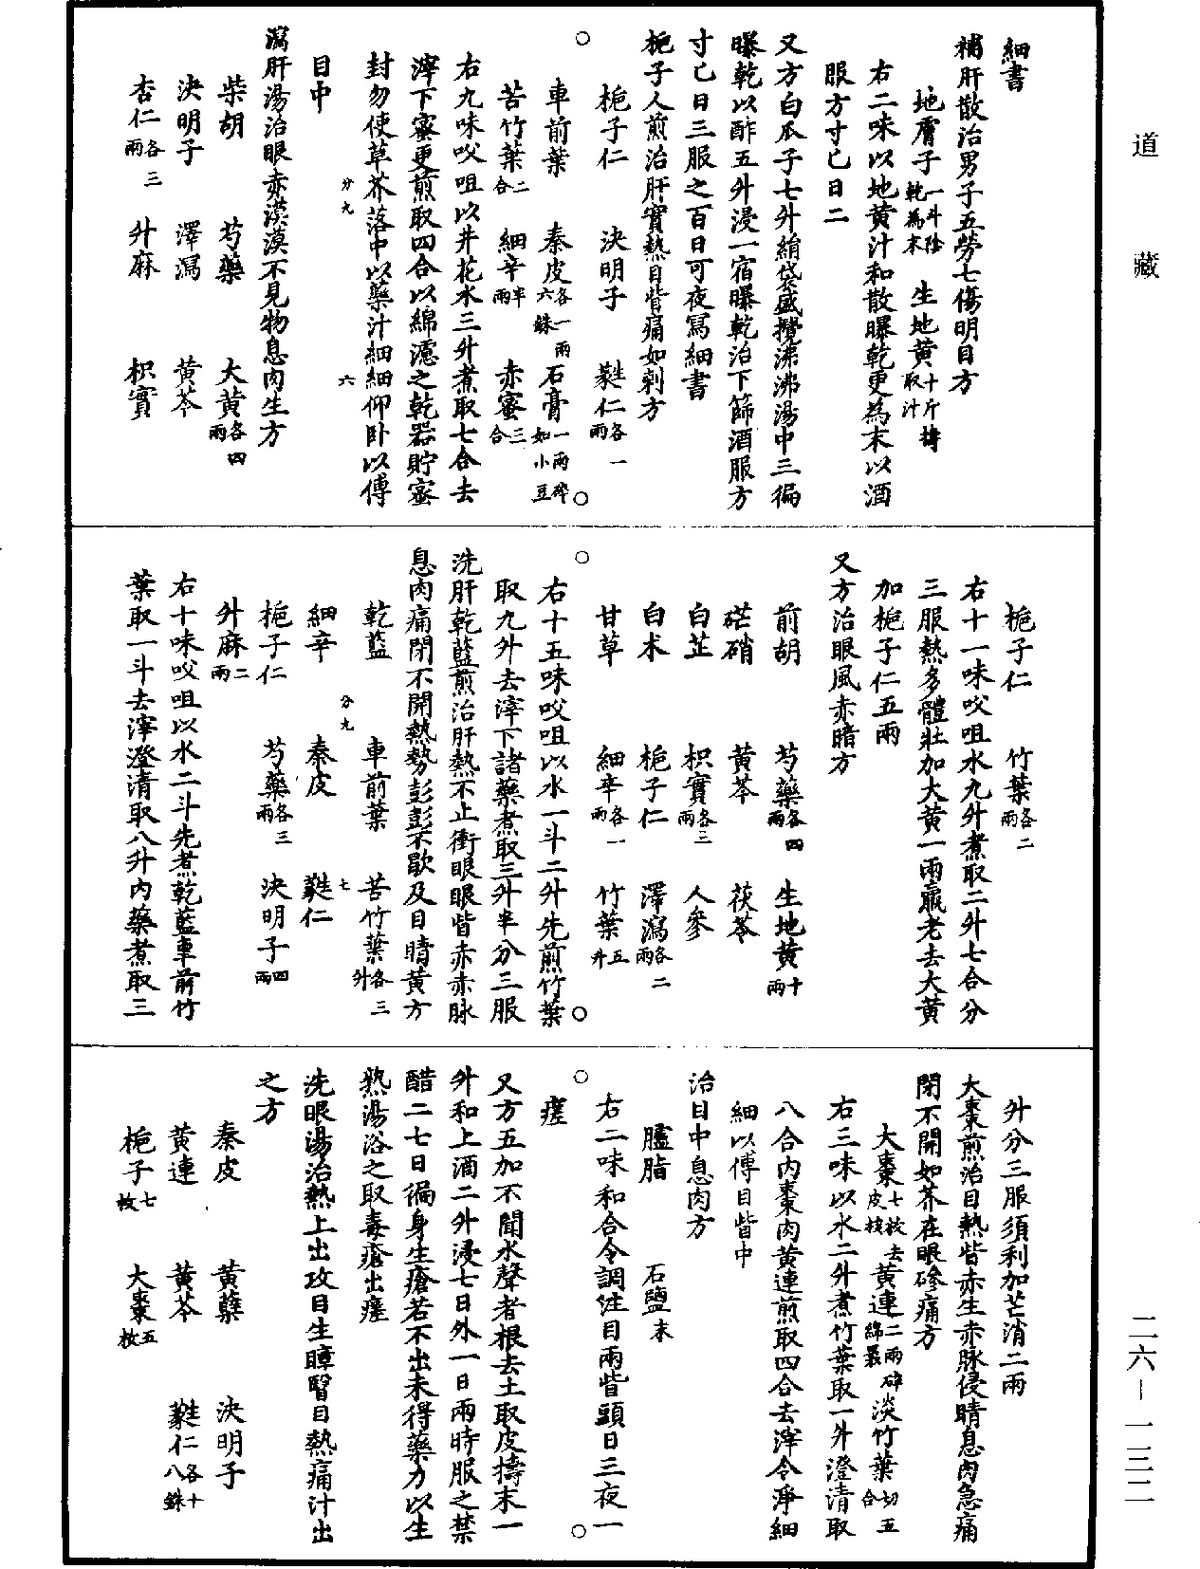 道藏
二六—一三二
細書
補肝散治男子五勞七傷明目方
地膚子一斗陰乾為末 生地黃十斤擣取汁
右二味以地黃汁和散曝乾更為末以酒
服方寸匕日二
又方白瓜子七升絹袋盛攪沸沸湯中三徧
曝乾以酢五升浸一宿曝乾治下篩酒服方
寸匕日三服之百日可夜寫細書
梔子人煎治肝實熱目眥痛如刺方
梔子仁 決明子 蕤仁各一兩
車前葉 秦皮各一兩六銖 石膏一兩碎如小豆
苦竹葉二合 細辛半兩 赤蜜三合
右九味㕮咀以井花水三升煮取七合去
滓下蜜更煎取四合以綿濾之乾器貯蜜
封勿使草芥落中以藥汁細細仰臥以傅
分九 六
目中
瀉肝湯治眼赤漠漠不見物息肉生方
柴胡 芍藥 大黃各四兩
決明子 澤瀉 黃芩
杏仁各三兩 升麻 枳實
梔子仁 竹葉各二兩
右十一味㕮咀水九升煮取二升七合分
三服熱多體壯加大黃一兩羸老去大黃
加梔子仁五兩
又方治眼風赤暗方
前胡 芍藥各四兩 生地黃十兩
芒硝 黃芩 茯苓
白芷 枳實各三兩 人參
白术 梔子仁 澤瀉各二兩
甘草 細辛各一兩 竹葉五升
右十五味㕮咀以水一斗二升先煎竹葉
取九升去滓下諸藥煮取三升半分三服
洗肝乾藍煎治肝熱不止衝眼眼眥赤赤脉
息肉痛閉不開熱勢彭彭不歇及目睛黃方
乾藍 車前葉 苦竹葉各三升
分九 七
細辛 秦皮 蕤仁
梔子仁 芍藥各三兩 決明子四兩
升麻二兩
右十味㕮咀以水二斗先煮乾藍車前竹
葉取一斗去滓澄清取八升內藥煮取三
升分三服須利加芒消二兩
大棗煎治目熱眥赤生赤脉侵睛息肉急痛
閉不開如芥在眼磣痛方
大棗七枚去皮核 黃連二兩碎綿裹 淡竹葉切五合
右三味以水二升煮竹葉取一升澄清取
八合內棗肉黃連煎取四合去滓令淨細
細以傅目眥中
治目中息肉方
驢脂 石鹽末
右二味和合令調注目兩眥頭日三夜一
瘥
又方五加不聞水聲者根去土取皮擣末一
升和上酒二升浸七日外一日兩時服之禁
醋二七日徧身生瘡若不出未得藥力以生
熟湯浴之取毒瘡出瘥
洗眼湯治熱上出攻目生障翳目熱痛汁出
之方
秦皮 黃蘗 決明子
黃連 黃芩 蕤仁各十八銖
梔子七枚 大棗五枚